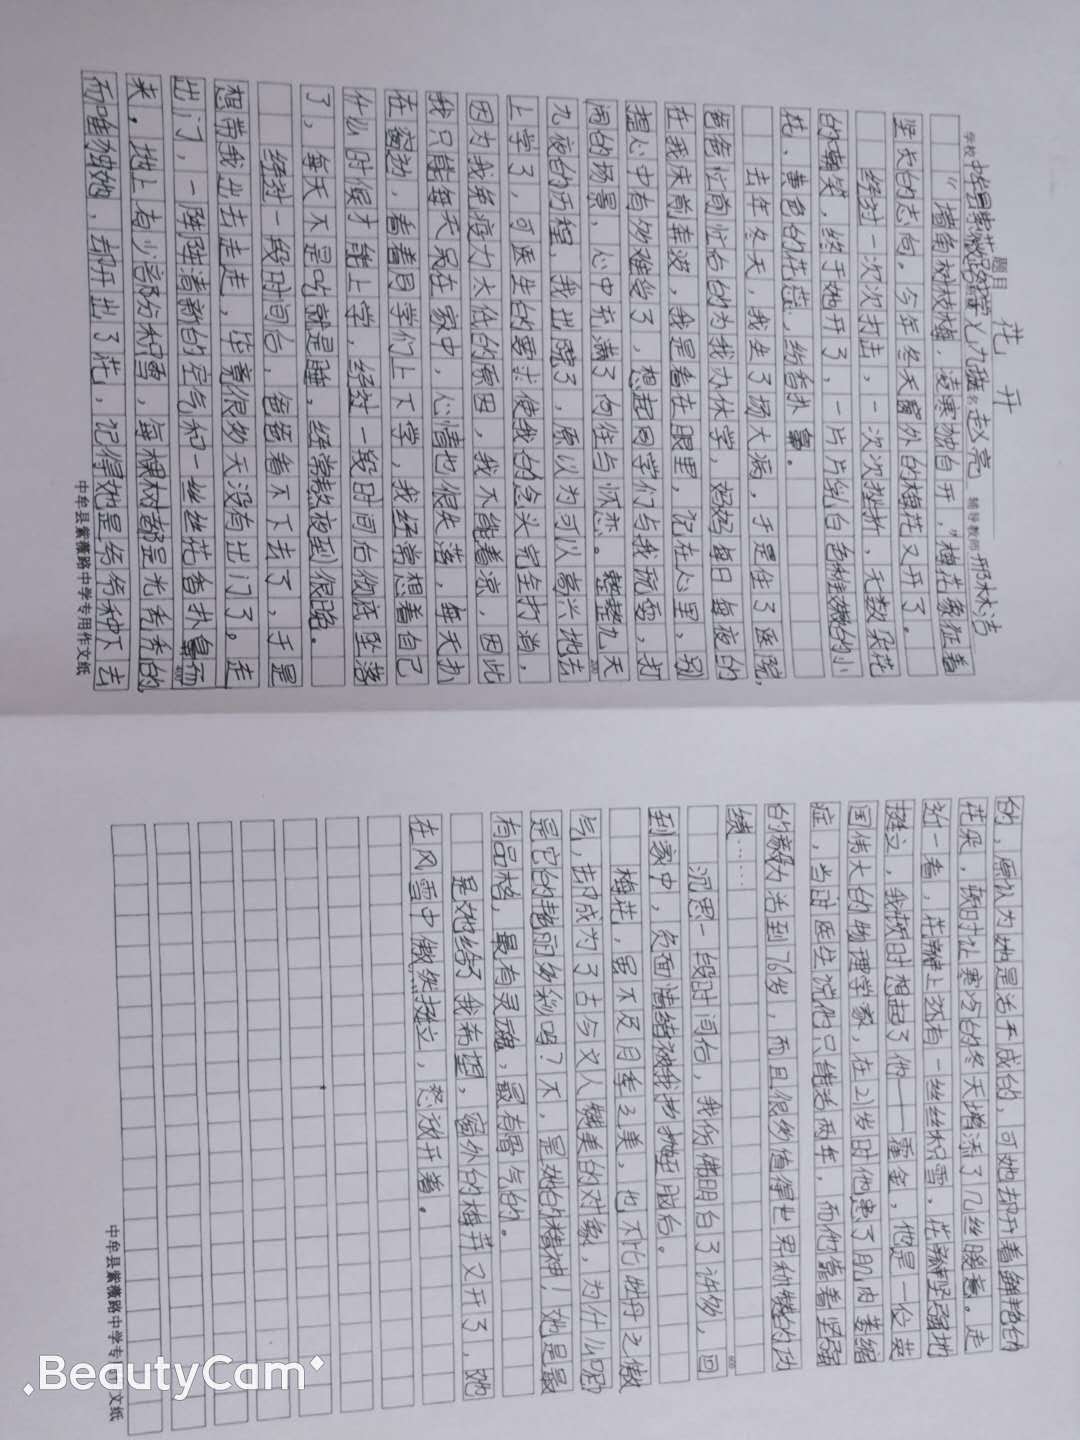 题目 花开
学校 中牟县紫薇路中学 七九班 名 赵亮 辅导教师 邢林吉
“墙角数枝梅，凌寒独自开，”梅花象征着
坚长的志向。今年冬天窗外的梅花又开了。
经过一次次打击，一次次挫折，无数朵花
的嘲笑，终于她开了，一片片乳白色娇嫩的小
花，黄色的花蕊，给香扑鼻。
去年冬天，我生了场大病，于是住了医院，
爸爸忙前忙后的为我办休学，妈妈每日每夜的
在我床前奔波，我是看在眼里，记在心里，别
提心中有多难受了，想起同学们与我玩耍，打
闹的场景，心中充满了向往与怀恋。整整九天
九夜的历程，我出院了，原以为可以高兴地去
上学了，可医生的要求使我的念头完全打消，
因为我免疫力太低的原因，我不能着凉，因此
我只能每天呆在家中，心情也很失落，每天扒
在窗边，看着同学们上下学，我经常想着自己
什么时候才能上学，经过一段时间后彻底坠落
了，每天不是吃就是睡，经常熬夜到很晚。
经过一段时间后，爸爸看不下去了，于是
想带我出去走走，毕竟很多天没有出门了。走
出门，一阵阵清新的空气和一丝丝花香扑鼻而
来，地上有少部份积雪，每棵树都是光秃秃的
而唯独她，却开出了花，记得她是爷爷种下去
的，原认为她是活不成的，可她却开着鲜艳的
花朵，顿时让寒冷的冬天增添了几丝暖意。走
近一看，花瓣上还有一丝丝积雪，花瓣坚强地
挺立，我顿时想起了他——霍金，他是一位英
国伟大的物理学家，在21岁时他患了肌肉萎缩
症，当时医生说他只能活两年，而他靠着坚强
的毅力活到76岁，而且很多值得世界称赞的功
绩……
沉思一段时间后，我仿佛明白了许多，回
到家中，负面情绪被我抛到脑后。
梅花，虽不及月季之美，也不比牡丹之傲
气，却成为了古今文人赞美的对象，为什么呢
是它的艳丽多彩吗？不，是她的精神！她是最
有品格，最有灵魂，最有骨气的。
是她给了我希望，窗外的梅花又开了，她
在风雪中傲然挺立，怒放开着。
中牟县紫薇路中学专用作文纸
中牟县紫薇路中学专用作文纸
BeautyCam